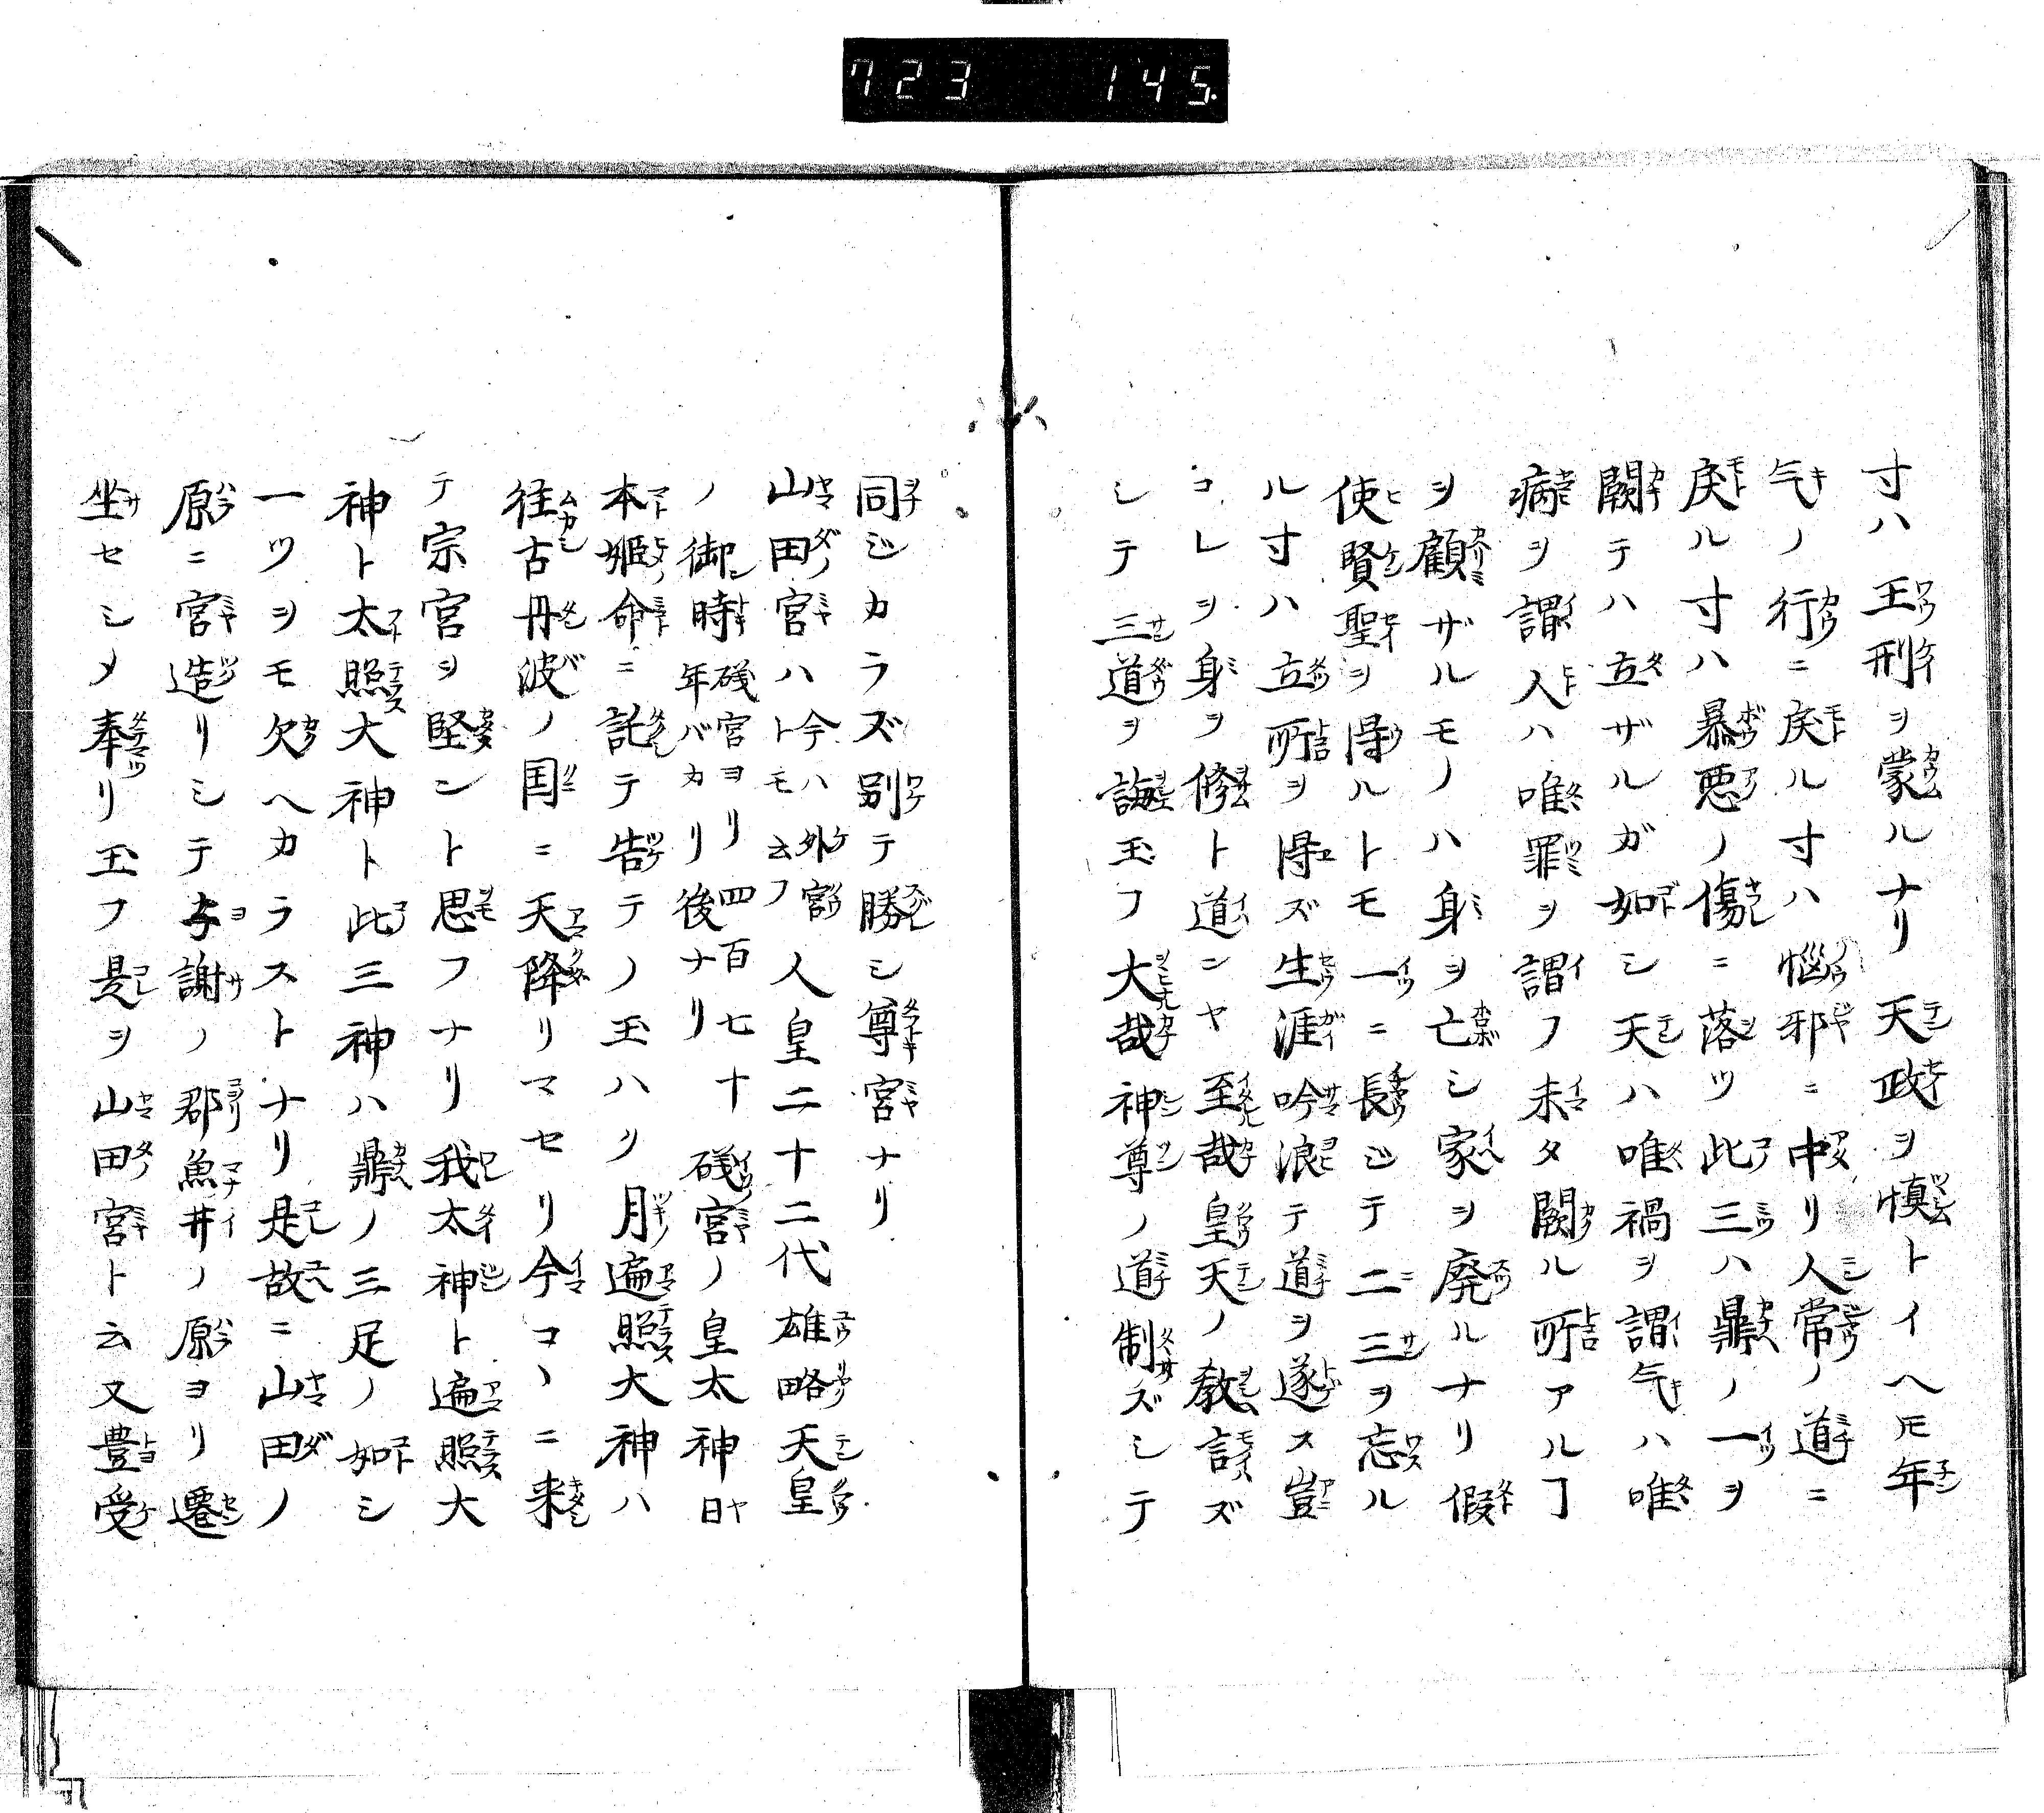 723 145
寸ハ王刑ヲ蒙ルナリ天政ヲ慎トイヘ𪜈年
气ノ行ニ戻ル寸ハ惱邪ニ中リ人常ノ道ニ
戻ル寸ハ暴悪ノ傷ニ落ツ此三ハ鼎ノ一ヲ
闕テハ立ザルガ如シ天ハ唯禍ヲ謂气ハ唯
病ヲ謂人ハ唯罪ヲ謂フ未タ闕ル所アルヿ
ヲ顧ザルモノハ身ヲ亡シ家ヲ廃ルナリ假
使賢聖ヲ得ルトモ一ニ長ジテ二三ヲ忘ル
ル寸ハ立所ヲ得ズ生涯吟浪テ道ヲ遂ス豈
コレヲ身ヲ修ト道ンヤ至哉皇天ノ教言ズ
シテ三道ヲ誨玉フ大哉神尊ノ道制ズシテ
同ジカラズ別テ勝シ尊宮ナリ
山田宮ハ今ハ外宮トモ云フ人皇二十二代雄略天皇
ノ御時礒宮ヨリ四百七十年バカリ後ナリ礒宮ノ皇太神日
本姫命ニ託テ告テノ玉ハク月遍照大神ハ
往古丹波ノ国ニ天降リマセリ今コヽニ来
テ宗宮ヲ堅ント思フナリ我太神ト遍照大
神ト太照大神ト此三神ハ鼎ノ三足ノ如シ
一ツヲモ欠ヘカラストナリ是故ニ山田ノ
原ニ宮造リシテ与謝ノ郡魚井ノ原ヨリ遷
坐セシメ奉リ玉フ是ヲ山田宮ト云又豊受